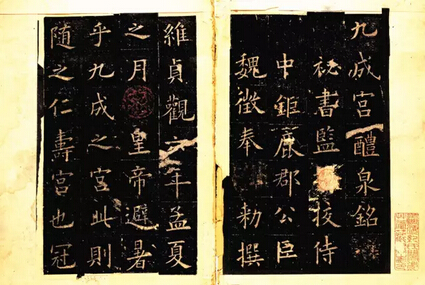 九成宮醴泉銘
祕書監校侍
中鉅鹿郡公臣
魏徵奉 勑撰
維貞觀六年孟夏
之月 皇帝避暑
乎九成之宮此則
随之仁壽宮也冠